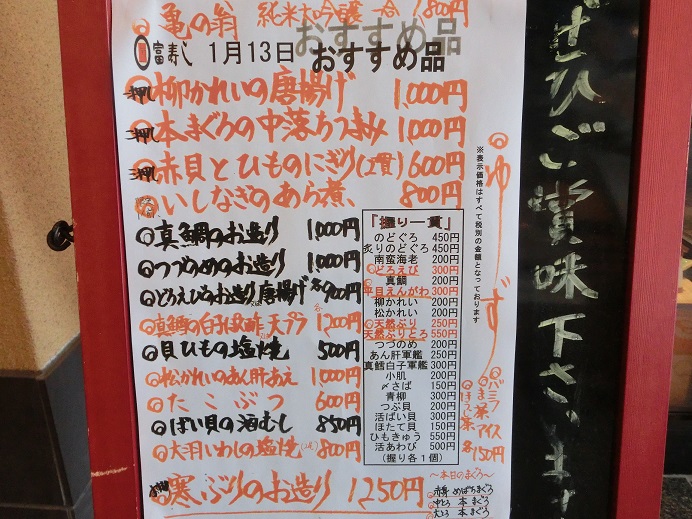 亀の翁 純米大吟醸 一合 1,800円
富寿し 1月13日 おすすめ品
おすすめ品
一押し 柳かれいの唐揚げ 1,000円
二押し 本まぐろの中落ちつまみ 1,000円
三押し 赤貝とひものにぎり(2貫) 600円
いしなぎのあら煮、800円
真鯛のお造り 1,000円
つづのめのお造り 1,000円
どろえびお造り 唐揚げ 各900円
真鱈の白子ぽん酢 天プラ 各1200円
貝ひもの塩焼 500円
松かれいのあん肝あえ 1,000円
たこぶつ 600円
ばい貝の酒むし 850円
大羽いわしの塩焼 800円
寒ぶりのお造り 1250円
「握り一貫」
のどぐろ 450円
炙りのどぐろ 450円
南蛮海老 200円
どろえび 300円
真鯛 200円
平目えんがわ 300円
柳かれい 200円
松かれい 200円
天然ぶり 250円
天然ぶりとろ 550円
つづのめ 200円
あん肝軍艦 250円
真鱈白子軍艦 300円
小肌 200円
〆さば 150円
青柳 300円
つぶ貝 200円
活ばい貝 300円
ほたて貝 150円
ひもきゅう 550円
活あわび 500円
(握り各1個)
※表示価格はすべて税別の金額となっております
ゆず
バニラ
まっ茶
ほうじ茶
アイス
各150円
～本日のまぐろ～
赤身 めばちまぐろ
中とろ 本まぐろ
大とろ 本まぐろ
ぜひご賞味下さいませ